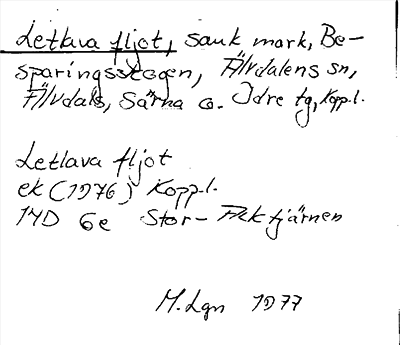 Letlava fljot, sank mark, Be-
sparingsskogen, Älvdalens sn,
Älvdals, Särna o. Idre tg, Kopp.l.
Letlava fljot
ek (1976) Kopp.l.
14D 6e Stor-Acktjärnen
M.Lgn 1977